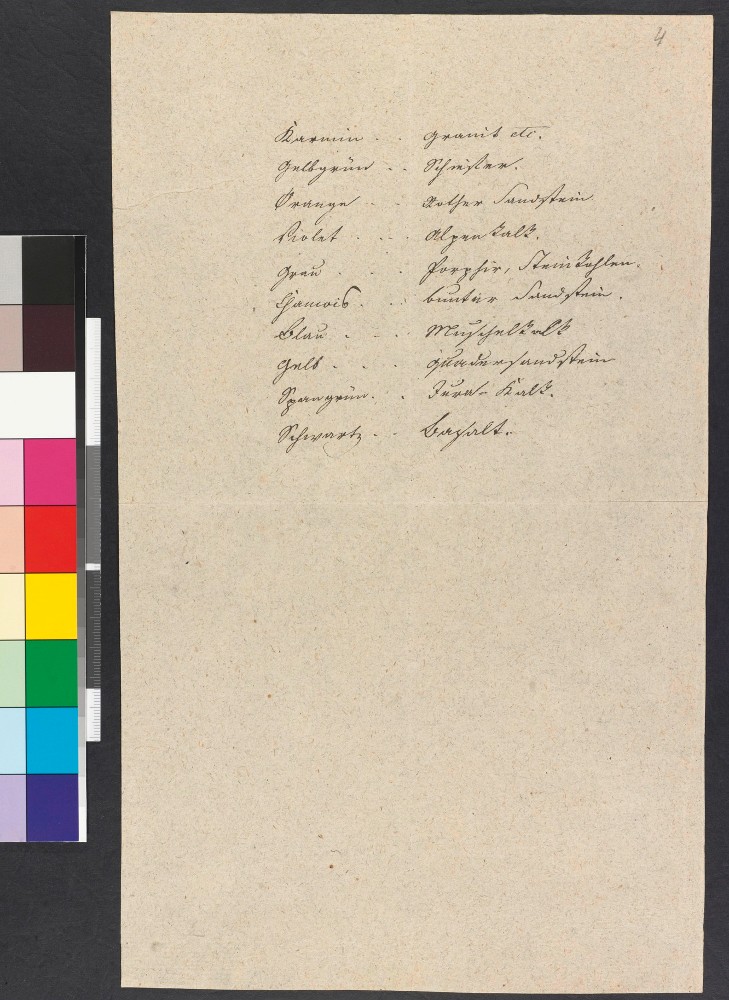 4
Karmin . . . Granit etc.
Gelbgrün . . Schiefer.
Orange . . Rother Sandstein
Violet . . . Alpenkalk.
Grau . . . Porphir, Steinkohlen.
Chamois . . bunter Sandstein.
Blau . . . Muschelkalk
Gelb . . . Quadersandstein
Spangrün. . Jura-Kalk.
Schwartz . . Basalt.